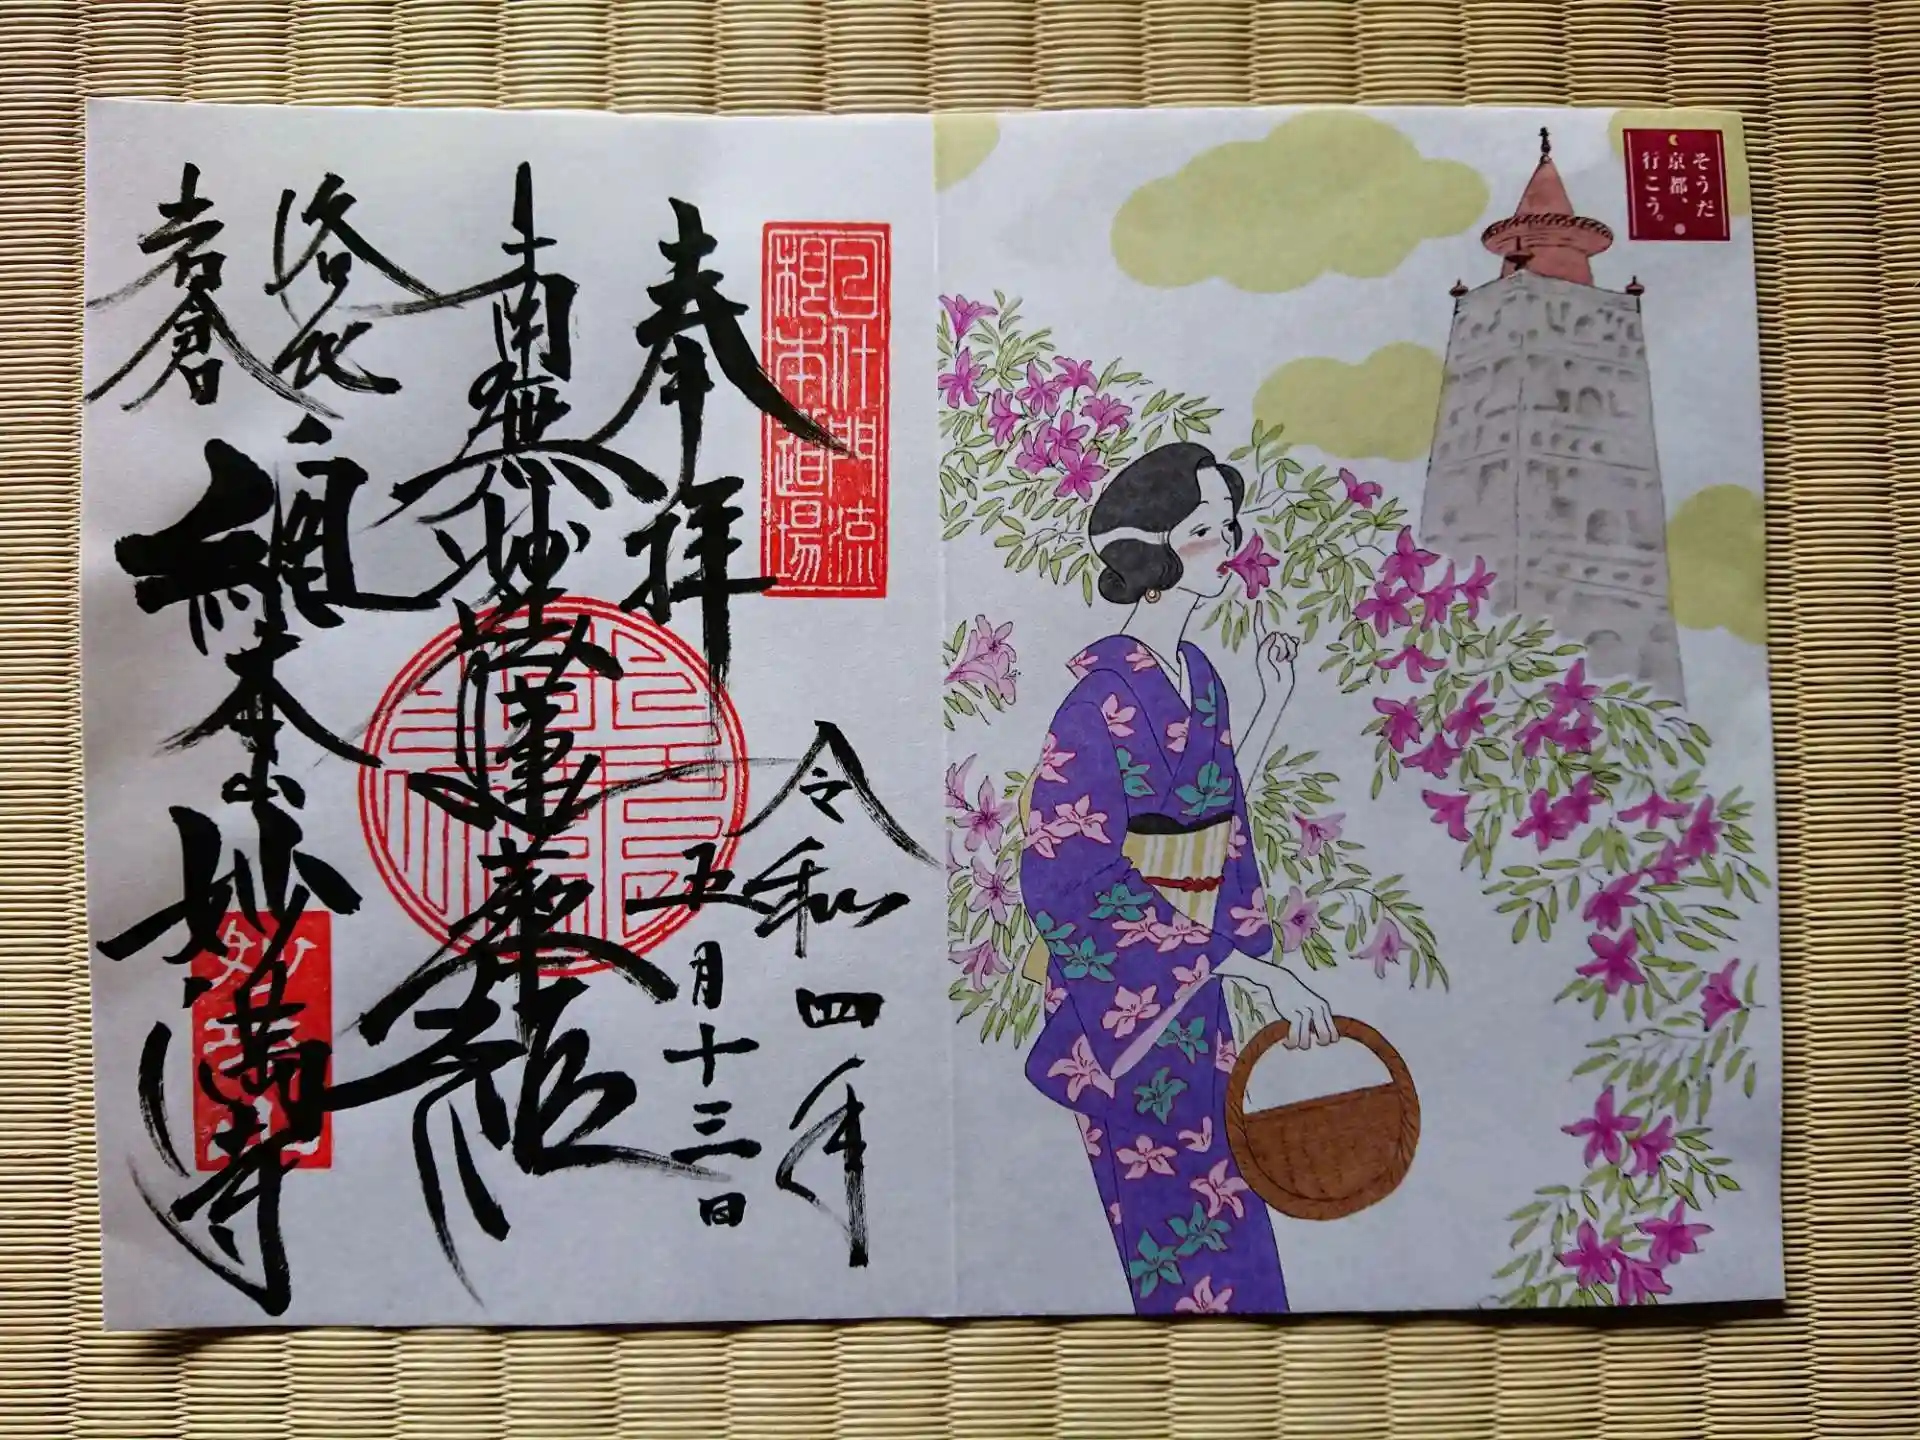 そうだ
京都、
行こう。
日什門流
根本道場
奉拝
令和四年
五月十三日
南無妙法蓮華経
洛北
岩倉
總本山妙満寺